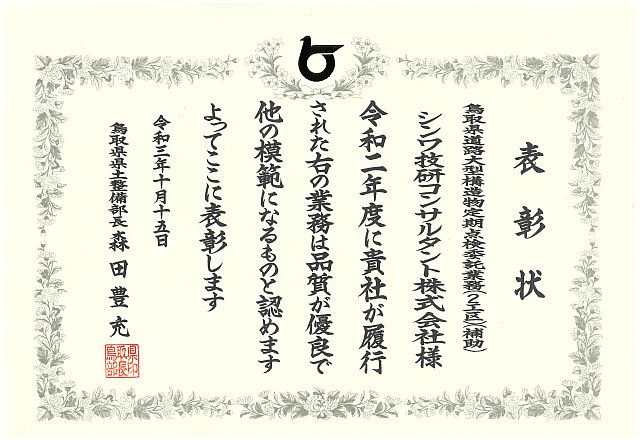 表彰状
鳥取県道路大型構造物定期点検委託業務(2工区)(補助)
シンワ技研コンサルタント株式会社様
令和二年度に貴社が履行
された右の業務は品質が優良で
他の模範になるものと認めます
よってここに表彰します
令和三年十月十五日
鳥取県県土整備部長 森田豊充